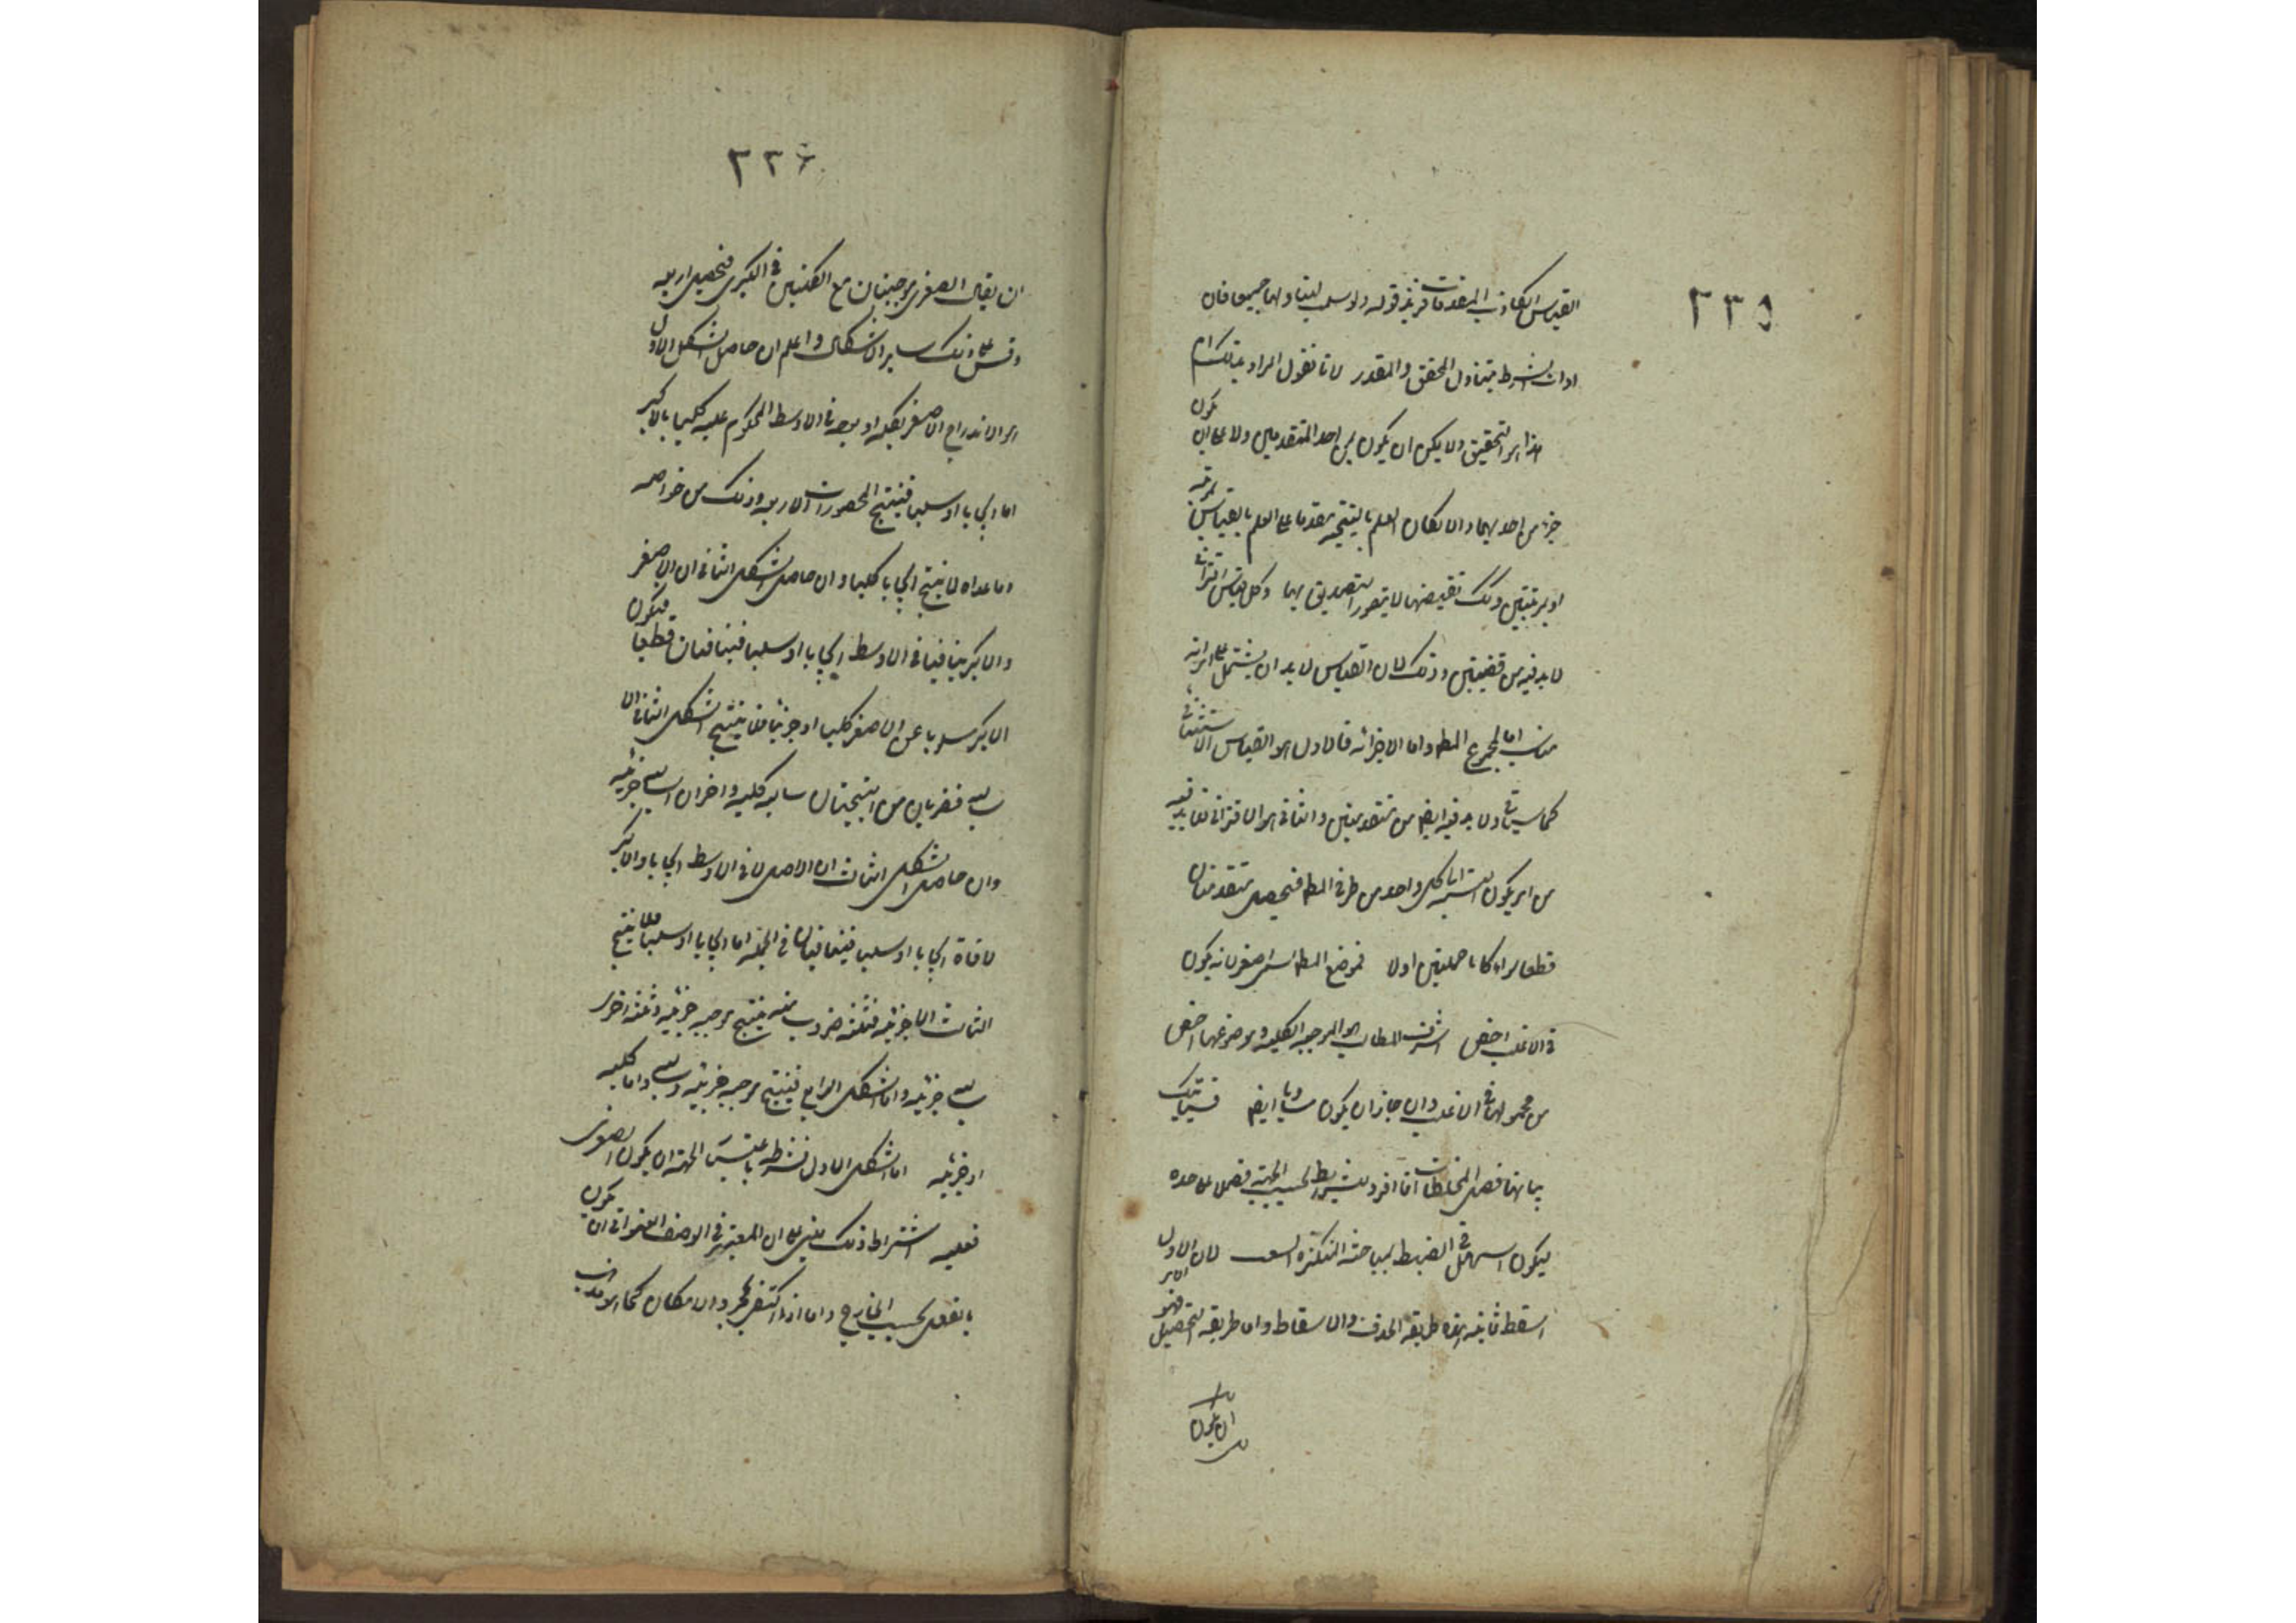 ٢٣٥
القياس الكاذب المقدمات بقرينة قوله ولو سلمت ليتناولهما جميعا فان
ادات الشرط يتناول المحقق والمقدر لانا نقول المراد بذلك ان
هذا هو التحقيق ولا يمكن ان يكون عين احد المتقدمين ولا على ان يكون
جزء من احديهما والا لكان العلم بالنتيجة مقدما على العلم بالقياس بمرتبة
او بمرتبتين وذلك نقيضهما لا يتصور التصديق بهما وكل قياس اقترانى
لا بد فيه من قضيتين وذلك لان القياس لا بد ان يشتمل على امر له
مناسب اما لمجموع المط واما لاجزائه فالاول هو القياس الاستثنائى
كما سيأتى ولا بد فيه ايضا من مقدمتين والثانى هو الاقترانى فلا بد فيه
من امر يكون نسبته الى كل واحد من طرفى المط فتحصل مقدمتان
قطعا سواء كانا حمليتين اولا فموضوع المط يسمى اصغر لانه يكون
فى الاغلب اخص اشرف المطالب هو الموجبة الكلية وموضوعها اخص
من محمولها فى الاغلب وان جاز ان يكون مساويا ايضا فسيأتيك
بيانها فصل المختلطات انما افرد شرايط بحسب الجهة فصلا على حده
ليكون اسهل فى الضبط لمباحثه المتكثرة لان الاول
اسقط ثمانية هذه طريقة الحذف والاسقاط واما طريقة التحصيل فهو
ان يكون
٢٣٦
ان يقال الصغرى موجبتان مع الكليتين فى الكبرى فتحصل اربعة
وقس على ذلك ساير الاشكال واعلم ان حاصل الشكل الاول
هو اندراج الاصغر بكله او بعضه فى الاوسط المحكوم عليه كليا بالاكبر
اما ايجابا او سلبا فينتج المحصورات الاربعة وذلك من خواصه
وما عداه لا ينتج ايجابا كليا وان حاصل الشكل الثانى ان الاصغر
والاكبر يتنافيان فى الاوسط ايجابا او سلبا فيتنافيان قطعا فيكون
الاكبر مسلوبا عن الاصغر كليا او جزئيا فلا ينتج الشكل الثانى الا
سالبة فضربان من النتيجتان سالبة كلية واخران سالبة جزئية
وان حاصل الشكل الثالث ان الاصغر لاقى الاوسط ايجابا والاكبر
لاقاه ايجابا او سلبا فيتلاقيان فى الجملة اما ايجابا او سلبا فلا ينتج
الثالث الا جزئية فثلثة ضروب منه ينتج موجبة جزئية وثلثة اخرى
سالبة جزئية واما الشكل الرابع فينتج موجبة جزئية وسالبة واما كلية
او جزئية اما الشكل الاول فشرطه باعتبار الجهة ان يكون الصغرى
فعلية اشتراط ذلك مبنى على ان المعتبر فى الوصف العنوانى ان يكون
بالفعل بحسب الخارج واما اذا اكتفى بمجرد الامكان كما هو مذهب